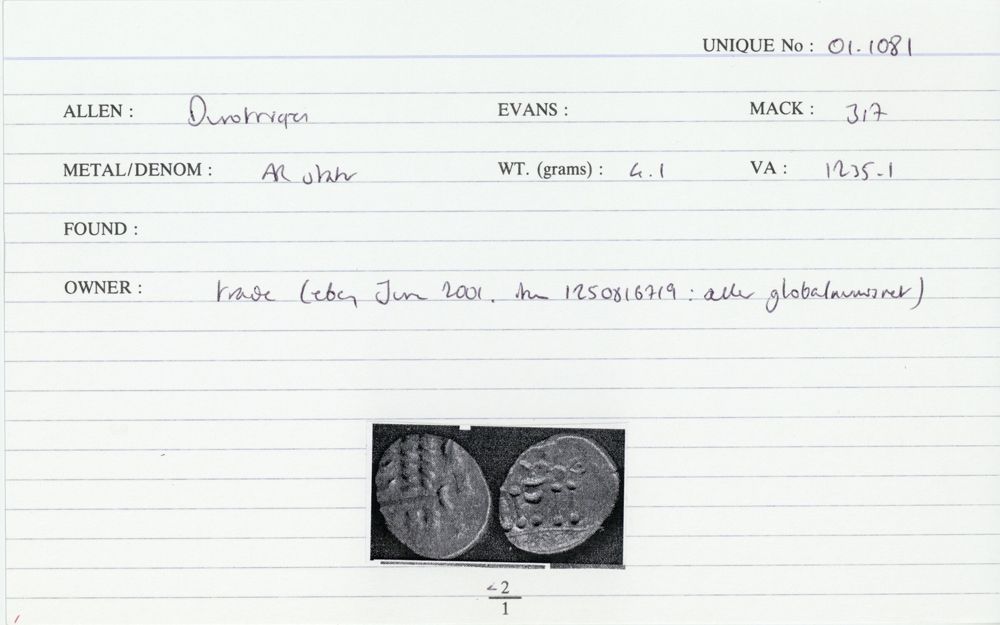 UNIQUE No : 01.1081
ALLEN : Durotriges EVANS : MACK : 317
METAL/DENOM : AR stater WT. (grams) : 4.1 VA : 1235-1
FOUND :
OWNER : trade (ebay June 2001. item 1250816719 : seller globalnumisnet)
<2
1